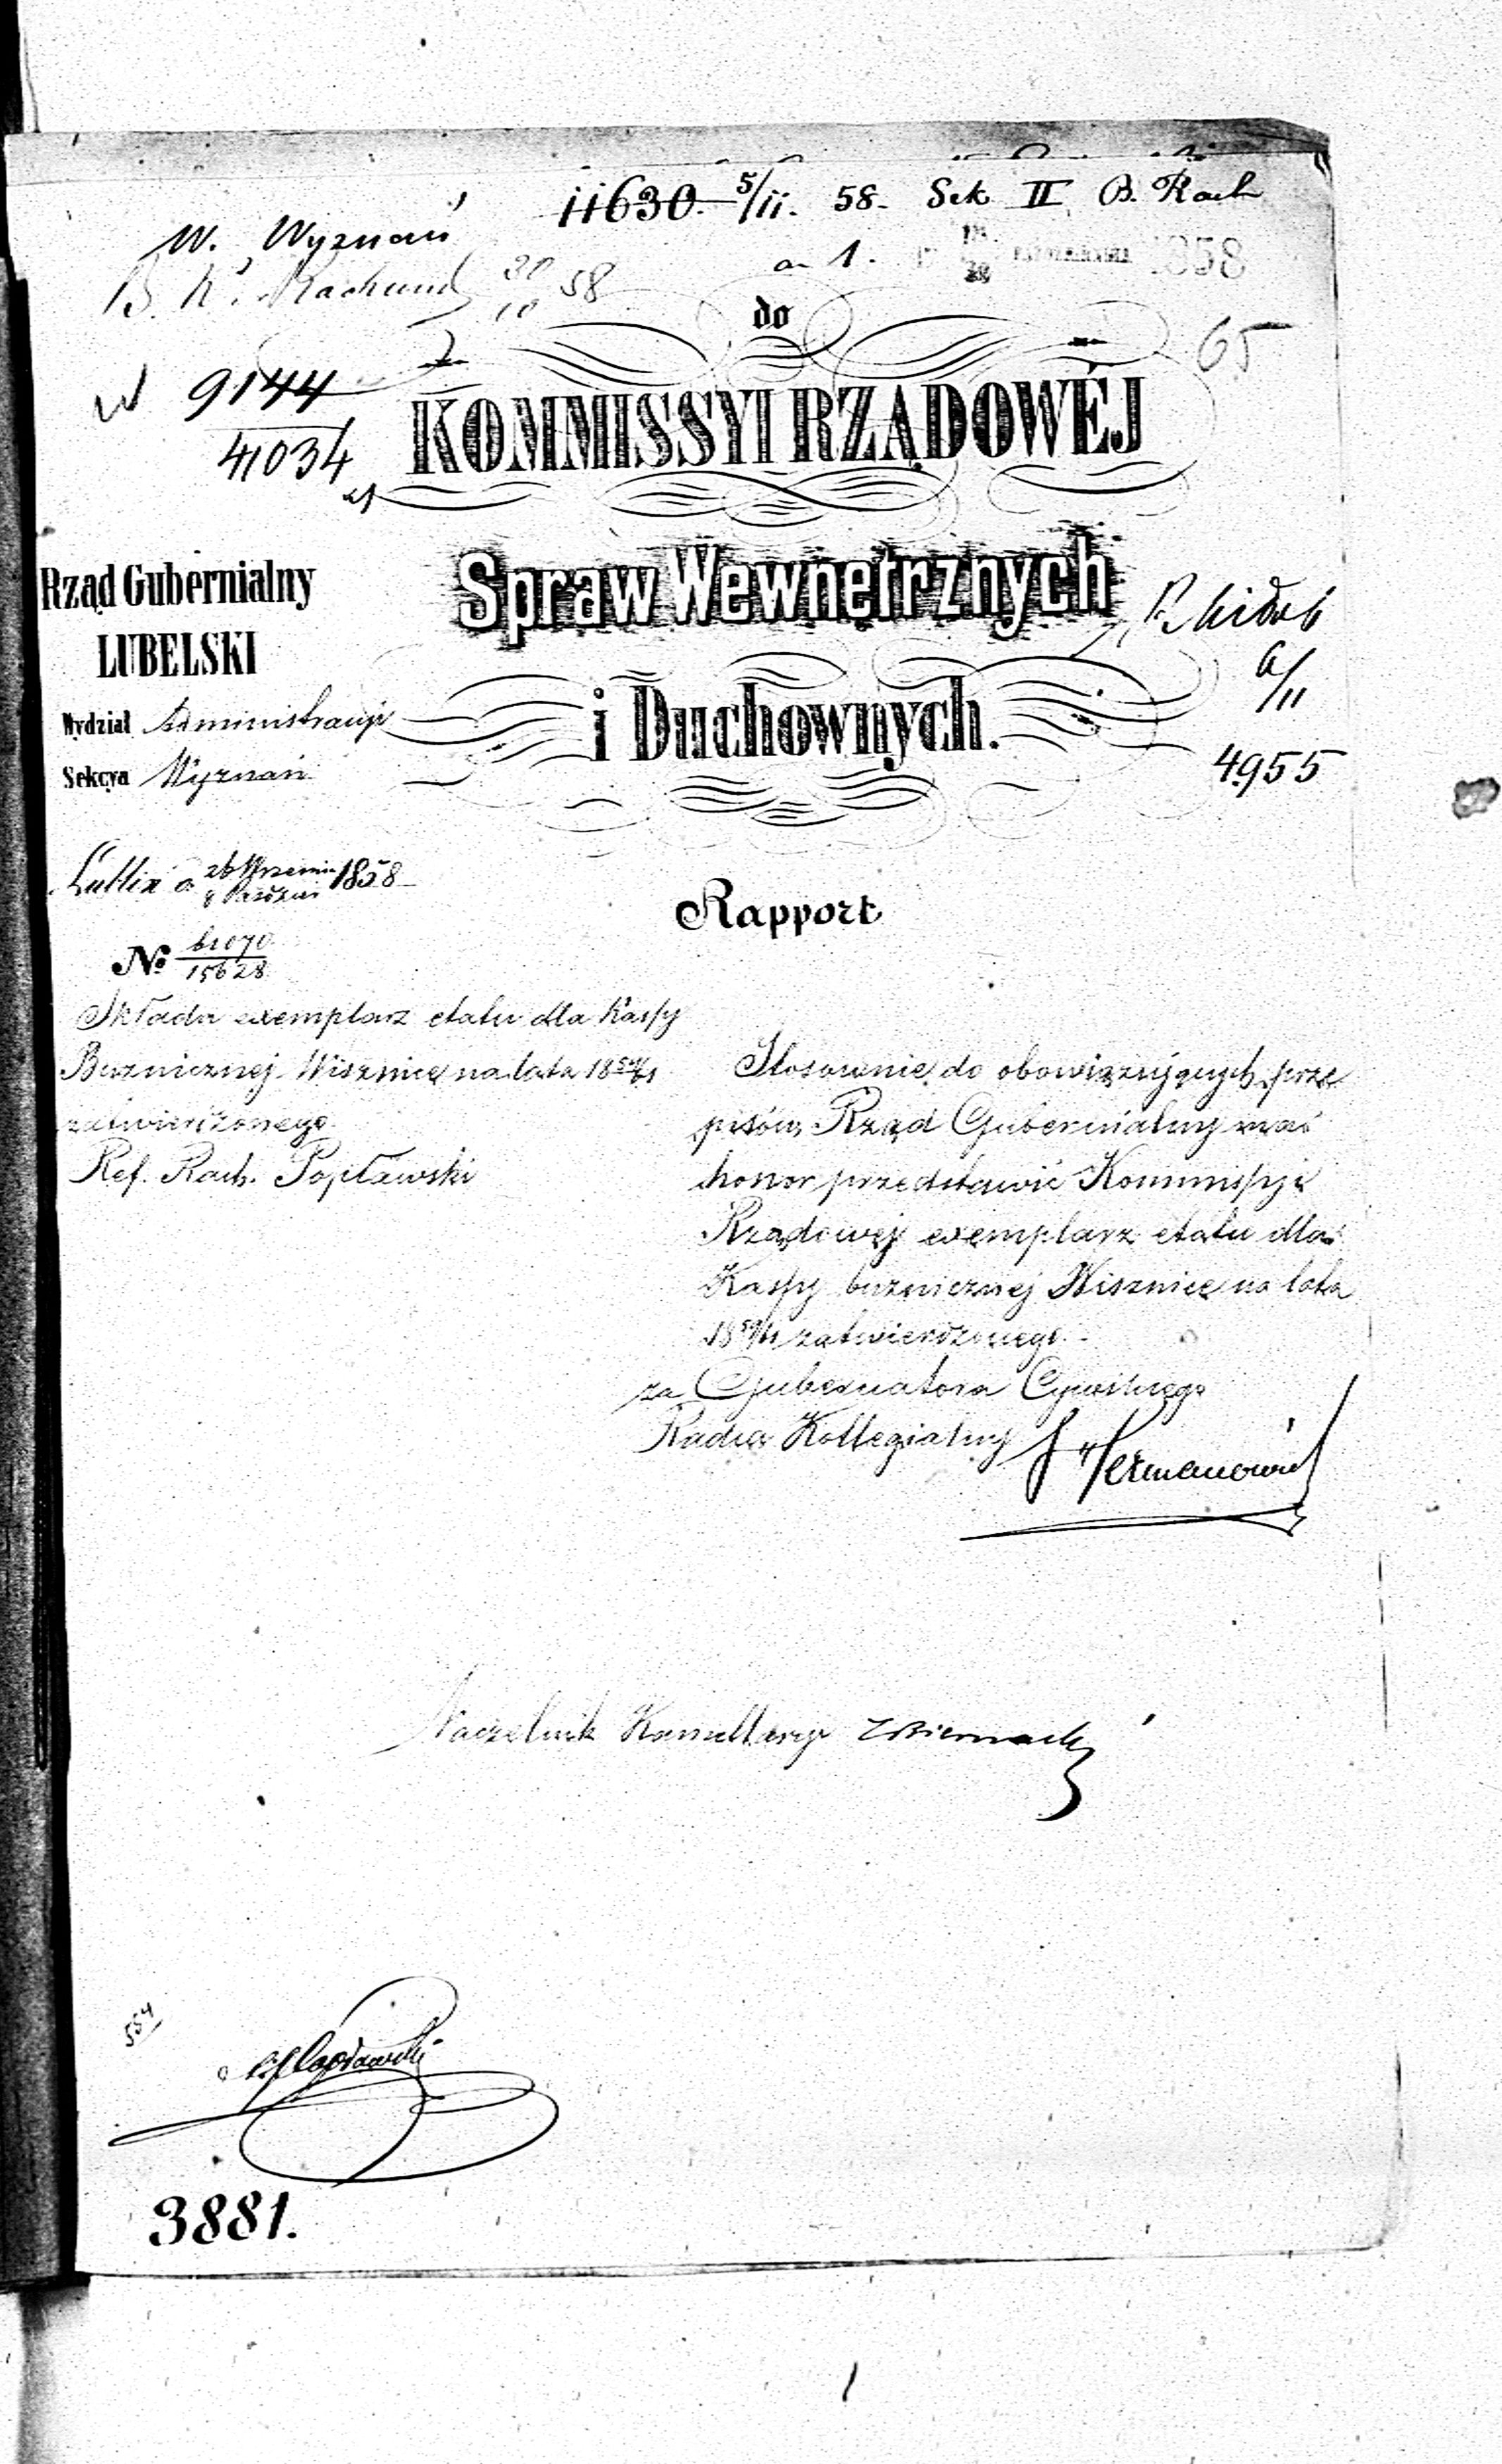 11630. 5/11. 58. Sek II B. Rach
W. Wyznań
a 1. 1858
B. K. Rachund 30/10 58
do
65
W 9144
41034
KOMMISSYI RZĄDOWÉJ
Spraw Wewnętrznych
i Duchownych.
6/11
4955
Rząd Gubernialny
LUBELSKI
Wydział Administracyi
Sekcya Wyznań
Lublin d. 26 Wrześnie / 8 Paździer 1858
Rapport
№ 61070/15628
Składa exemplarz etatu dla Kassy
Bużnicznej Wisznice na lata 1859/61
zatwierdzonego
Ref. Rach. Popławski
Stosownie do obowiązujących prze
pisów, Rząd Gubernialny ma
honor przedstawić Kommissyi
Rządowej exemplarz etatu dla
Kassy bużnicznej Wisznice na lata
1859/61 zatwierdzonego.
za Gubernatora Cywilnego
Radca Kollegialny Hermanowicz
Naczelnik Kancellaryi Biernacki
554
Popławski
3881.
1